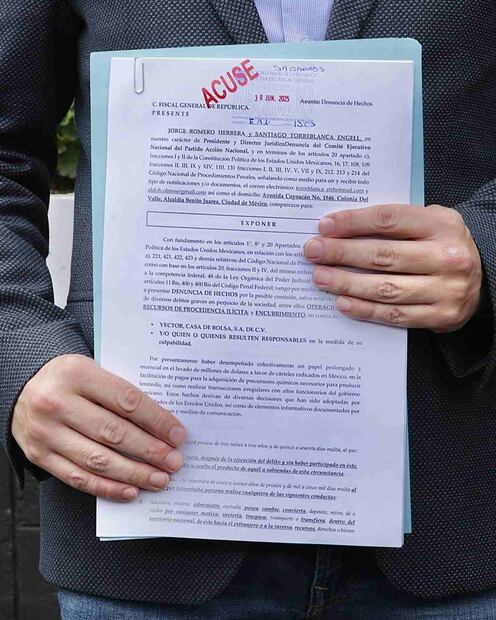 ACUSE
Sn anexos
30 JUN. 2025
Asunto: Denuncia de Hechos
C. FISCAL GENERAL DE REPÚBLICA.
PRESENTE
JORGE ROMERO HERRERA y SANTIAGO TORREBLANCA ENGELL, en
nuestro carácter de Presidente y Director JurídicoDenuncia del Comité Ejecutivo
Nacional del Partido Acción Nacional, y en términos de los artículos 20 apartado c),
fracciones I y II de la Constitución Política de los Estados Unidos Mexicanos, 16, 17, 108, 109
fracciones II, III, IX y XIV, 110, 131 fracciones I, II, III, IV, V, VII y IX, 212, 213 y 214 del
Código Nacional de Procedimientos Penales, señalando como medio para oír y recibir todo
tipo de notificaciones y/o documentos, el correo electrónico:
así como el domicilio Avenida Coyoacán No. 1546, Colonia Del
Valle, Alcaldía Benito Juárez, Ciudad de México, comparezco para:
EXPONER
Con fundamento en los artículos 1°, 8° y 20 Apartado
Política de los Estados Unidos Mexicanos; en relación con
a), 221, 421, 422, 423 y demás relativos del Código Nacional de
como con base en los artículos 20, fracciones II y IV, del mismo
la competencia federal; 48 de la Ley Orgánica del Poder Judicial
artículos 11 Bis, 400 y 400 Bis del Código Penal Federal; vengo por
a presentar DENUNCIA DE HECHOS por la posible comisión, salvo error
de diversos delitos graves en perjuicio de la sociedad, entre ellos
RECURSOS DE PROCEDENCIA ILÍCITA y ENCUBRIMIENTO, en contra de
• VECTOR, CASA DE BOLSA, S.A. DE C.V.
• Y/O QUIEN O QUIENES RESULTEN RESPONSABLES en la medida de su
culpabilidad.
Por presuntamente haber desempeñado colectivamente un papel prolongado y
esencial en el lavado de millones de dólares a favor de cárteles radicados en México, en la
facilitación de pagos para la adquisición de precursores químicos necesarios para producir
fentanilo, así como realizar transacciones irregulares con altos funcionarios del gobierno
mexicano. Estos hechos derivan de diversas decisiones que han sido adoptadas por
de los Estados Unidos, así como de elementos informativos documentados por
y medios de comunicación.
prisión de tres meses a tres años y de quince a sesenta días multa, al
después de la ejecución del delito y sin haber participado en éste,
u oculte el producto de aquel a sabiendas de esta circunstancia.
de cinco a quince años de prisión y de mil a cinco mil días multa al
interpósita persona realice cualquiera de las siguientes conductas:
Adquiera, enajene, administre, custodie, posea, cambie, convierta, deposite, retire, dé o
reciba por cualquier motivo, invierta, traspase, transporte o transfiera, dentro del
territorio nacional, de éste hacia el extranjero o a la inversa, recursos, derechos o bienes